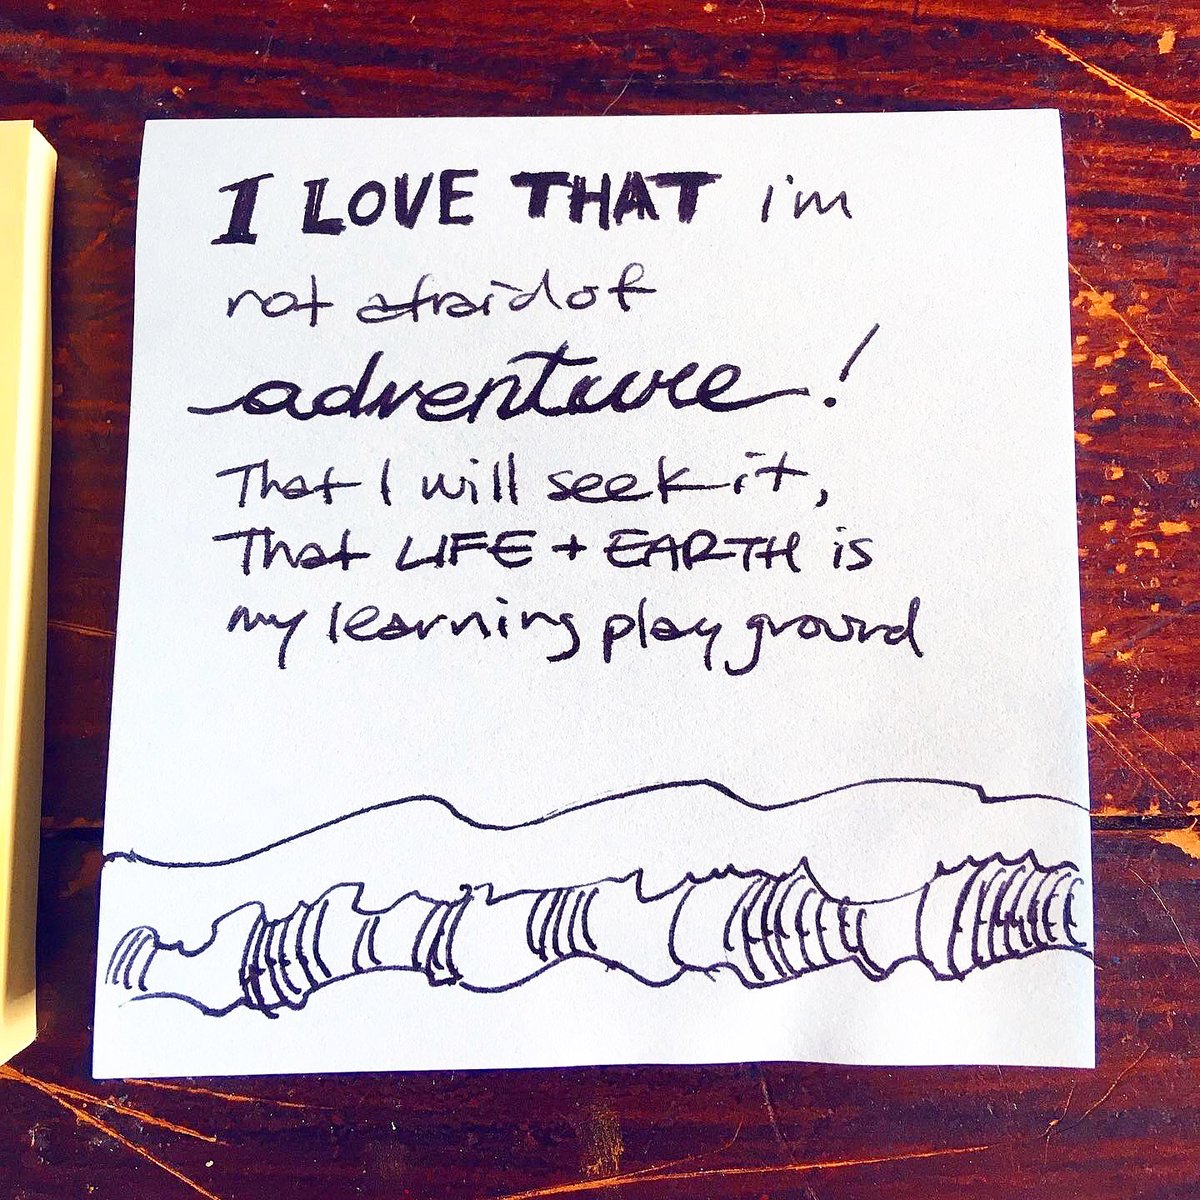 I LOVE THAT i'm
not afraid of
adventure!
That I will seek it,
That LIFE + EARTH is
my learning playground